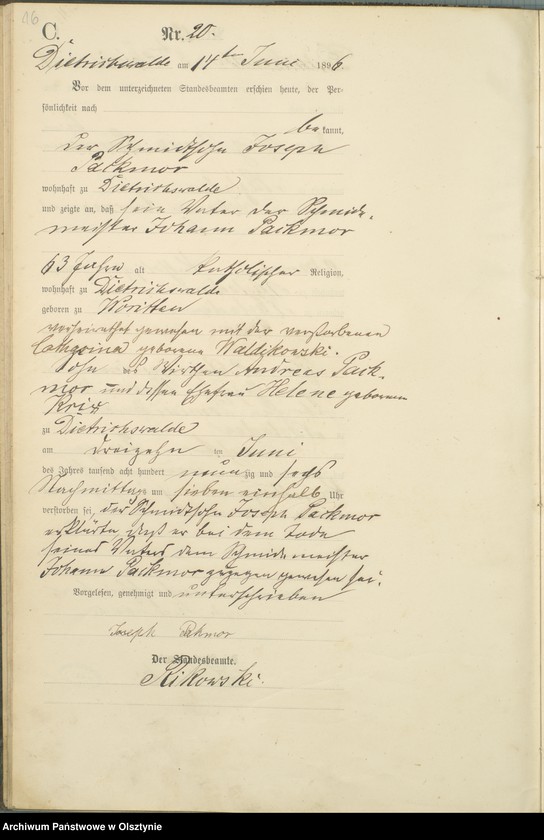 16
C.
Nr. 20.
Dietrichswalde am 14ten Juni 1896.
Vor dem unterzeichneten Standesbeamten erschien heute, der Per-
sönlichkeit nach
bekannt,
der Schmidtsohn Joseph
Packmor
wohnhaft zu Dietrichswalde
und zeigte an, daß sein Vater der Schmiede-
meister Johann Packmor
63 Jahre alt katholischer Religion,
wohnhaft zu Dietrichswalde
geboren zu Woritten
verheirathet gewesen mit der verstorbenen
Catharina geborene Waldikowski.
Sohn des Wirthen Andreas Pack-
mor und dessen Ehefrau Helene geborenen
Krix
zu Dietrichswalde
am dreizehn ten Juni
des Jahres tausend acht hundert neunzig und sechs
Nachmittags um sieben einhalb Uhr
verstorben sei, der Schmidtsohn Joseph Packmor
erklärte daß er bei dem Tode
seines Vaters dem Schmidemeister
Johann Packmor zugegen gewesen sei.
Vorgelesen, genehmigt und unterschrieben
Joseph Pakmor
Der Standesbeamte.
Rikowski.
Archiwum Państwowe w Olsztynie